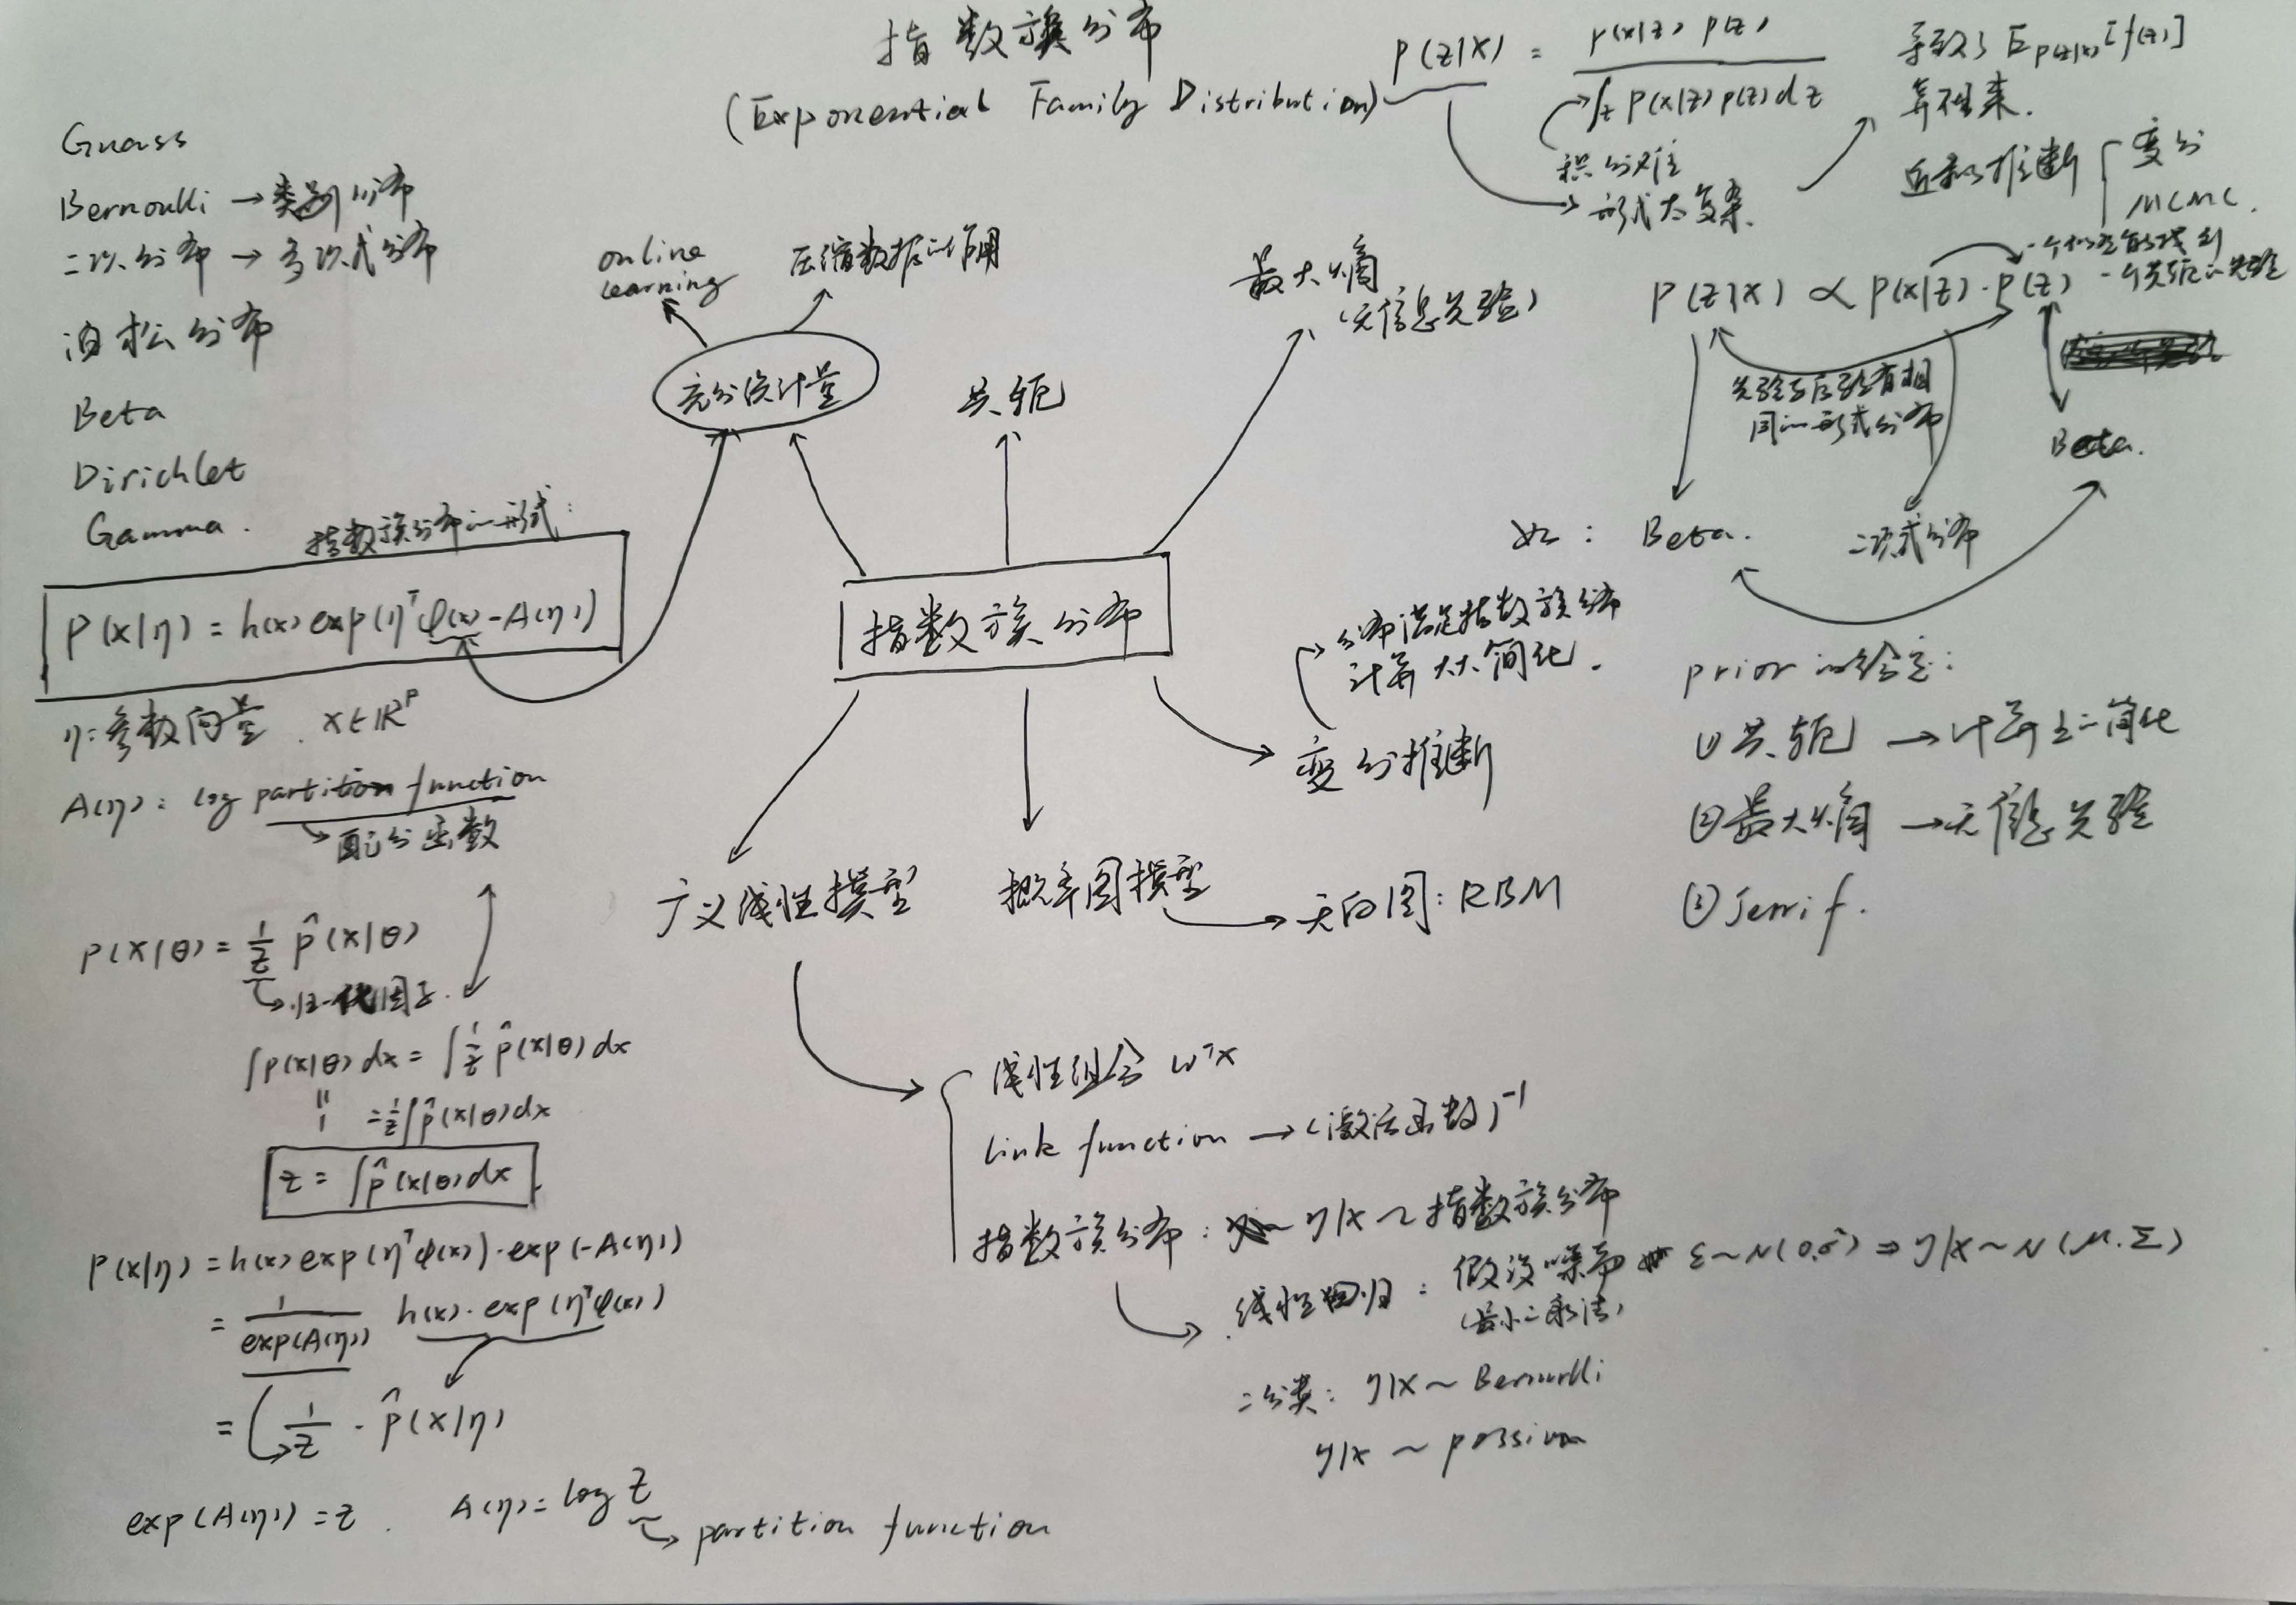 指数族分布
(Exponential Family Distribution)
Guass
Bernoulli → 类别分布
二项分布 → 多项式分布
泊松分布
Beta
Dirichlet
Gamma.
指数族分布的形式:
P(x|η) = h(x) exp(η^T φ(x) - A(η))
η: 参数向量. x∈ℝ^p
A(η): log partition function
→ 配分函数
P(x|θ) = 1/z p̂(x|θ)
→ 归一化因子.
∫p(x|θ)dx = ∫ 1/z p̂(x|θ)dx
1 = 1/z ∫p̂(x|θ)dx
z = ∫p̂(x|θ)dx
P(x|η) = h(x) exp(η^T φ(x)) · exp(-A(η))
= 1/exp(A(η)) h(x) · exp(η^T φ(x))
= 1/z · p̂(x|η)
exp(A(η)) = z. A(η) = log z
→ partition function
online learning
压缩数据的作用
充分统计量
共轭
最大熵
(无信息先验)
指数族分布
分布满足指数族分布
计算大大简化.
变分推断
广义线性模型
概率图模型
→ 无向图: RBM
线性组合 w^T x
link function → (激活函数)^-1
指数族分布: y|x ~ 指数族分布
线性回归: 假设噪声 ε~N(0,σ²) ⇒ y|x ~ N(μ.Σ)
(最小二乘法)
二分类: y|x ~ Bernurlli
y|x ~ possion
P(z|x) = p(x|z) p(z) / ∫z p(x|z) p(z) dz
积分难
形式太复杂.
导致了 E_p(z|x)[f(z)]
算不出来.
近似推断 { 变分
MCMC.
P(z|x) ∝ P(x|z) · P(z)
一个共轭的先验
先验与后验有相
同的形式分布
Beta.
如: Beta. 二项式分布
prior 的给定:
① 共轭 → 计算上的简化
② 最大熵 → 无信息先验
③ Jerrif.